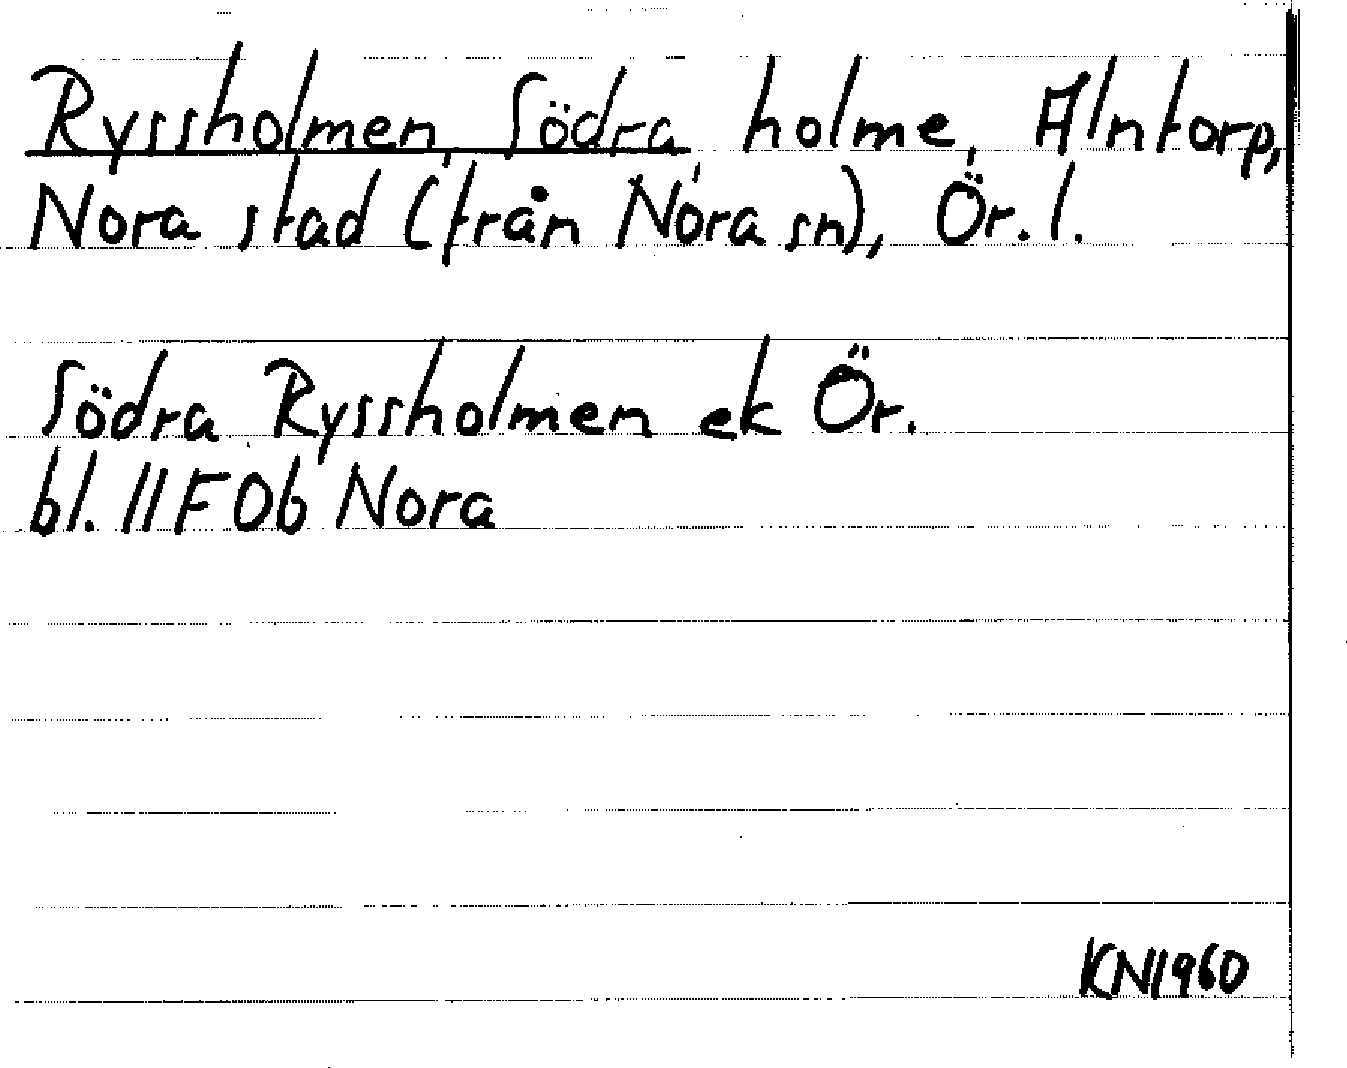 Ryssholmen, Södra, holme, Alntorp,
Nora stad (från Nora sn), Ör. l.
Södra Ryssholmen ek Ör.
bl. 11F 0b Nora
KN1960